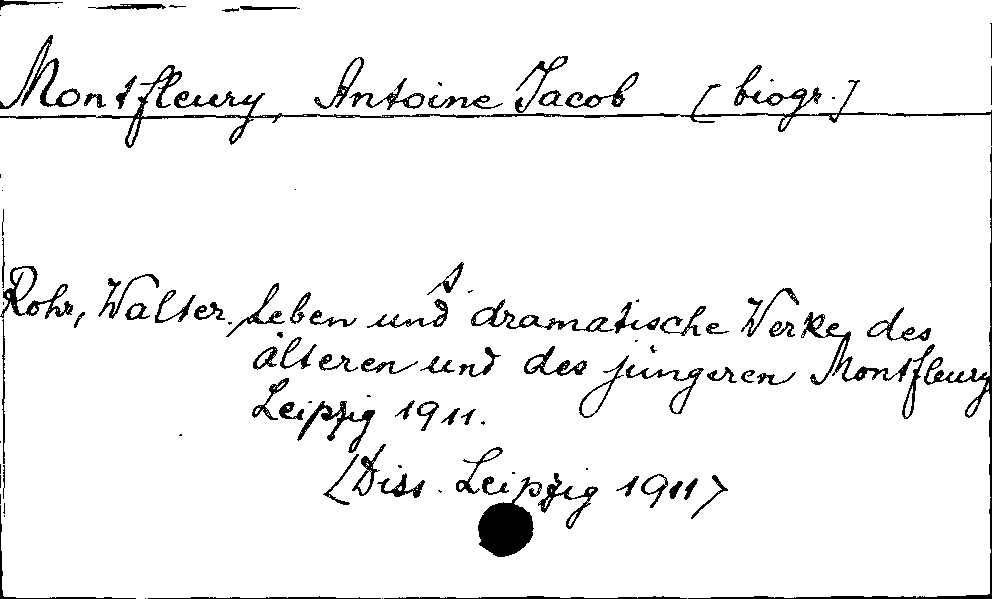 Montfleury, Antoine Jacob [biogr.]
Rohr, Walter. Leben und dramatische Werke des
älteren und des jüngeren Montfleury
Leipzig 1911.
<Diss. Leipzig 1911>